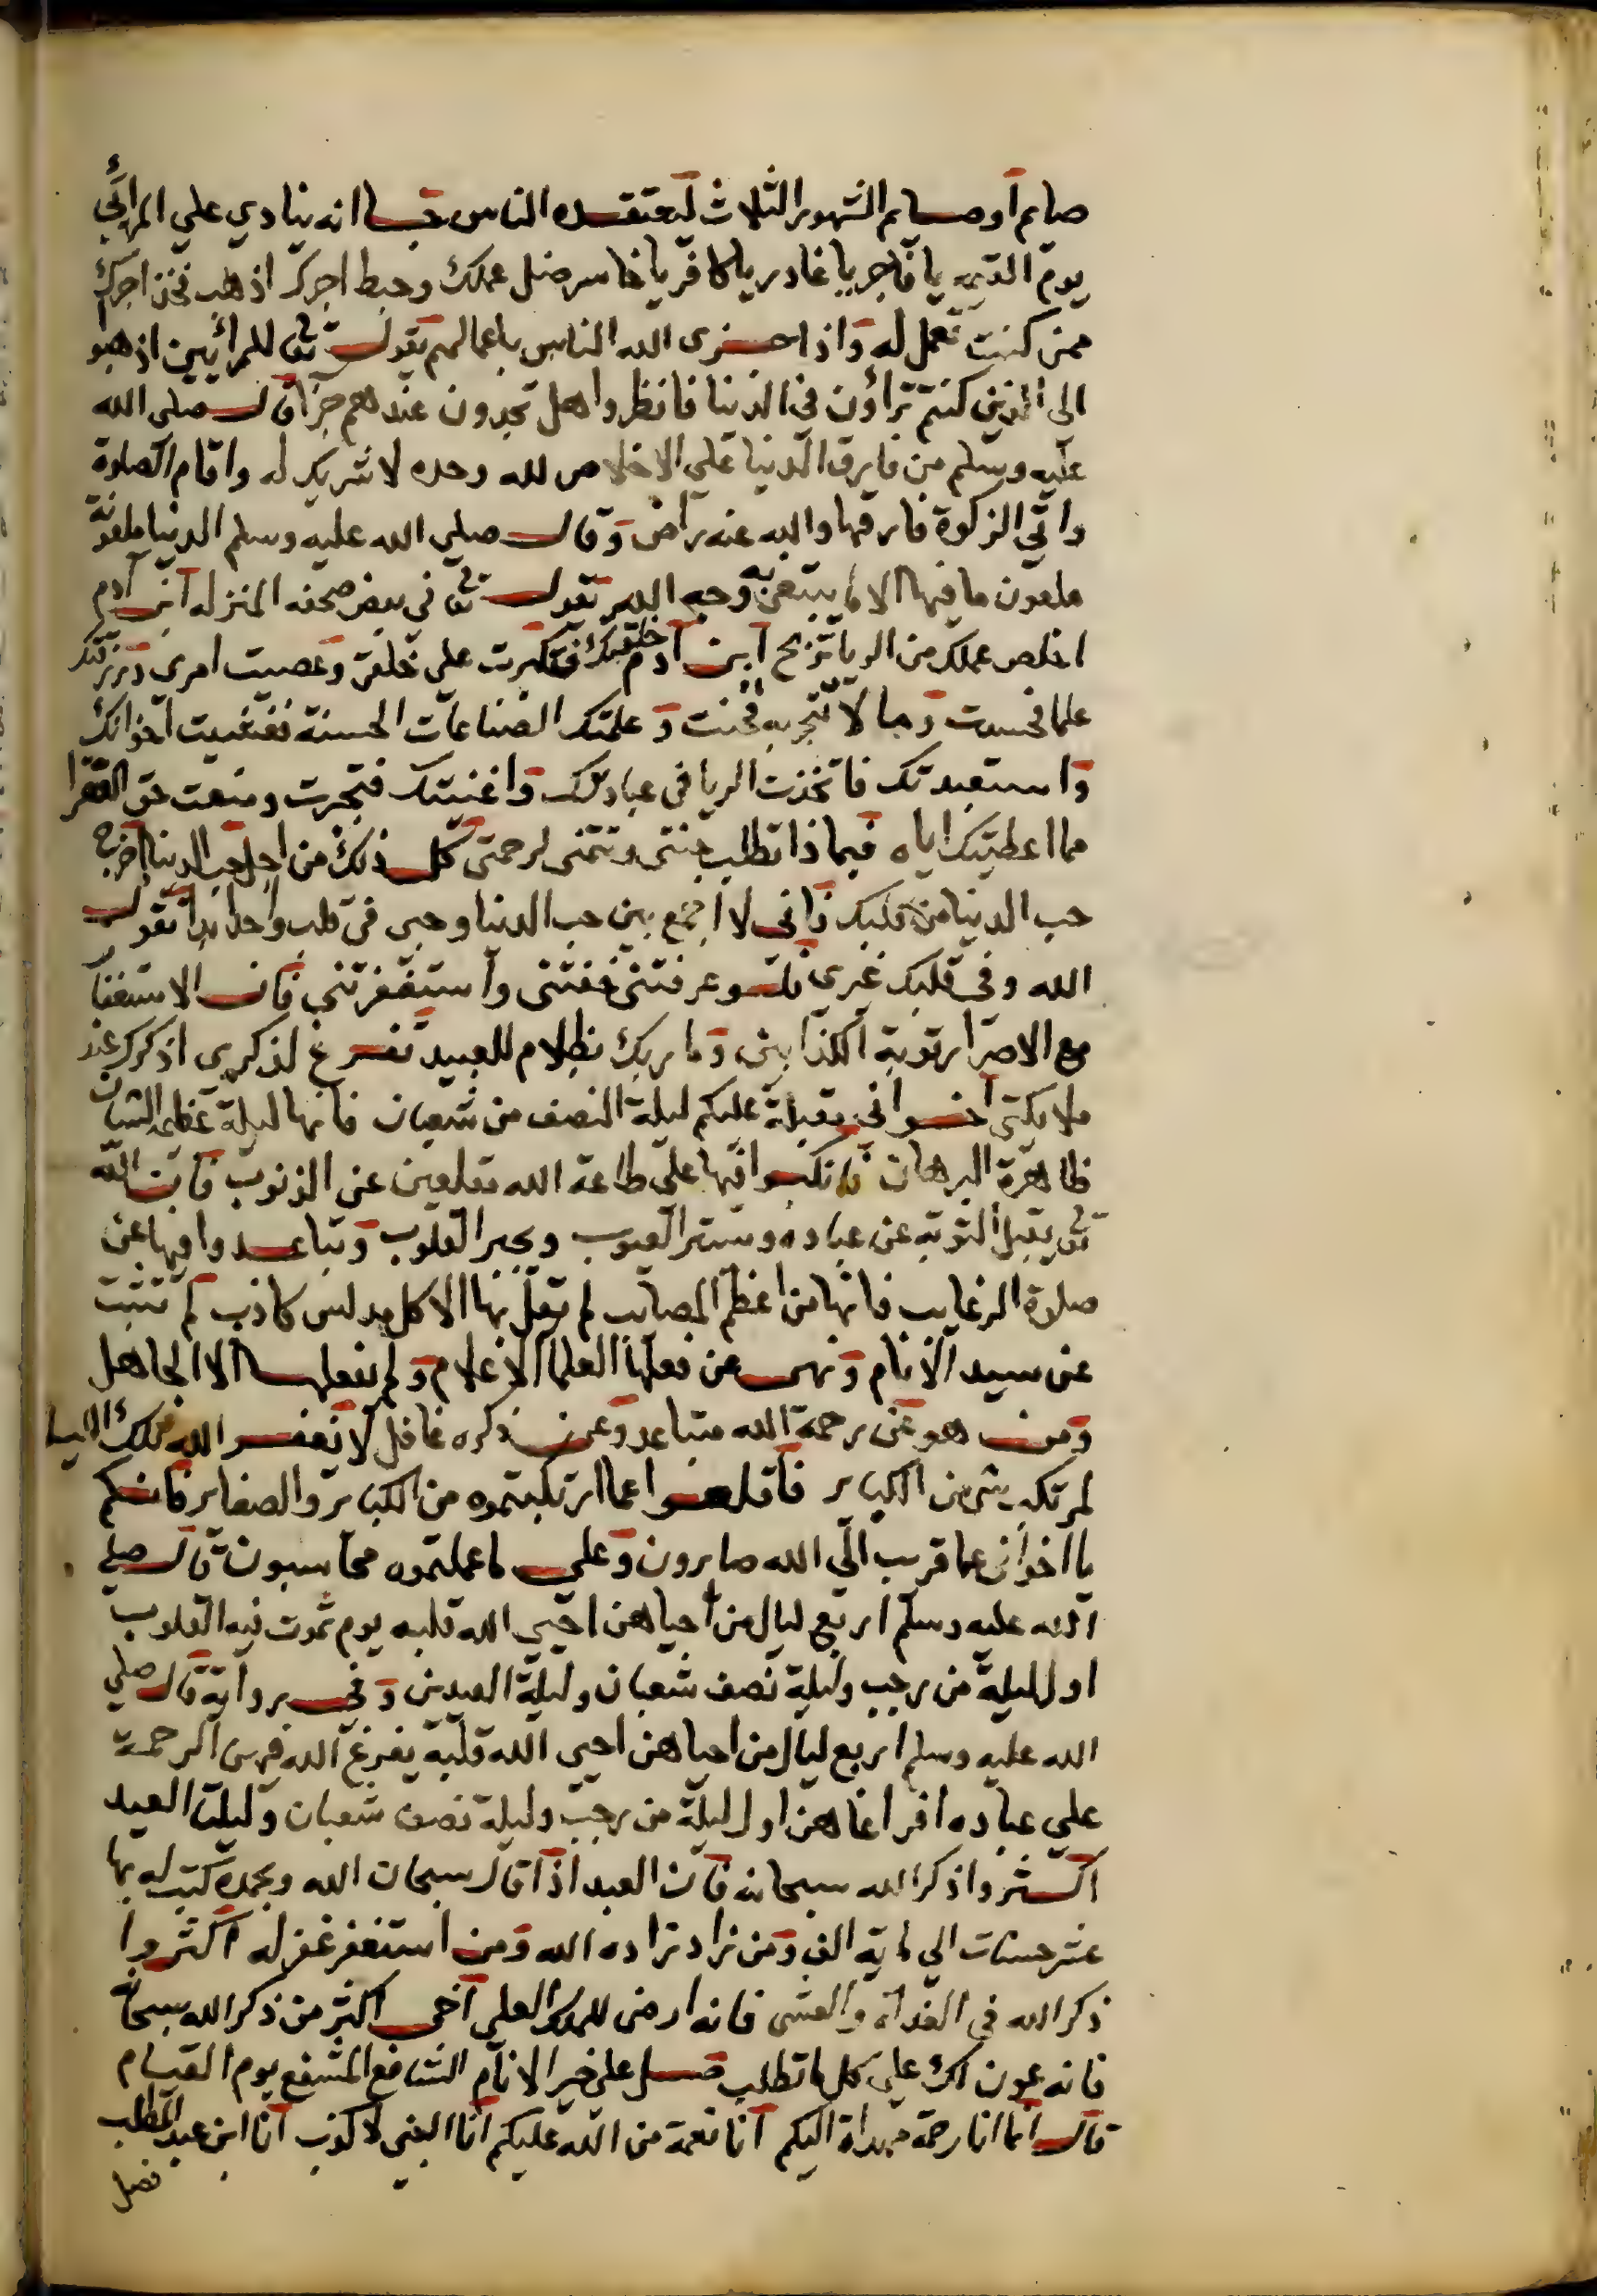 صايم او صايم الشهور الثلاث ليعتقده الناس خبا انه ينادي علي المرائي
يوم القيمه يا فاجر يا غادر يا كافر يا خاسر ضل عملك وحبط اجرك اذهب فخذ اجرك
ممن كنت تعمل له واذا جزى الله الناس باعمالهم يقول تعالى للمرائيين اذهبوا
الى الذين كنتم تراؤن في الدنيا فانظروا هل تجدون عندهم جزا قال صلى الله
عليه وسلم من فارق الدنيا على الاخلاص لله وحده لا شريك له واقام الصلوة
واتي الزكوة فارقها والله عنه راض وقال صلي الله عليه وسلم الدنيا ملعونة
ملعون ما فيها الا ما يبتغى به وجه الله يقول تعالى في بعض صحفه المنزله ابن آدم
اخلص عملك من الريا تربح ابن آدم خلقتك فتكبرت على خلقي وعصيت امري ورزقتك
علما فحسدت وما لا تتجر به فخنت وعلمتك الصناعات الحسنة فغششت اخوانك
واستعبدتك فاتخذت الريا في عبادتك واغنيتك فتجبرت ومنعت حق الفقرا
مما اعطيتك اياه فبماذا تطلب جنتي وتتمنى رحمتي كل ذلك من اجل حب الدنيا اخرج
حب الدنيا من قلبك فاني لا اجمع بين حب الدنيا وحبي في قلب واحد ابدا تقول
الله وفي قلبك غيري فلو عرفتني خفتني واستغفرتني فان الاستغفار
مع الاصرار توبة الكذابين وما ربك بظلام للعبيد تفرغ لذكري اذكرك عند
ملايكتي اخواني مقبلة عليكم ليلة النصف من شعبان فانها ليلة عظيمة الشان
ظاهرة البرهان فانكبوا فيها على طاعة الله مقلعين عن الذنوب فان الله
تعالى يقبل التوبه عن عباده وستر العيوب ويجبر القلوب وتباعدوا فيها عن
صلوة الرغايب فانها من اعظم المصايب لم يقل بها الا كل مدلس كاذب لم تثبت
عن سيد الانام ونهى عن فعلها العلما الاعلام ولم يفعلها الا الجاهل
ومن هو عن رحمة الله متباعد وعن ذكره غافل لا يغفر الله تلك الليلة
لمرتكب شي من الكباير فاقلعوا عما ارتكبتموه من الكباير والصغاير فانكم
يا اخواني عما قريب الي الله صايرون وعلى ما عملتموه محاسبون قال صلي
الله عليه وسلم اربع ليال من احياهن احيي الله قلبه يوم تموت فيه القلوب
اول ليلة من رجب وليلة نصف شعبان وليلة العيدين وفي رواية قال صلي
الله عليه وسلم اربع ليال من احياهن احيى الله قلبه يفرغ الله فيهن الرحمة
علي عباده افراغا هن اول ليلة من رجب وليلة نصف شعبان وليلتا العيد
اكثروا ذكر الله سبحانه فان العبد اذا قال سبحان الله وبحمده كتب له بها
عشر حسنات الي ماية الف ومن زاد زاده الله ومن استغفر غفر له اكثروا
ذكر الله في الغداة والعشى فانه ارضى للملك العلى اخي اكثر من ذكر الله سبحانه
فانه عون لك على كل ما تطلب صل علي خير الانام الشافع المشفع يوم القيام
قال انما انا رحمة مهداة اليكم انا نعمة من الله عليكم انا النبي لا كذب انا ابن عبد المطلب
فصل